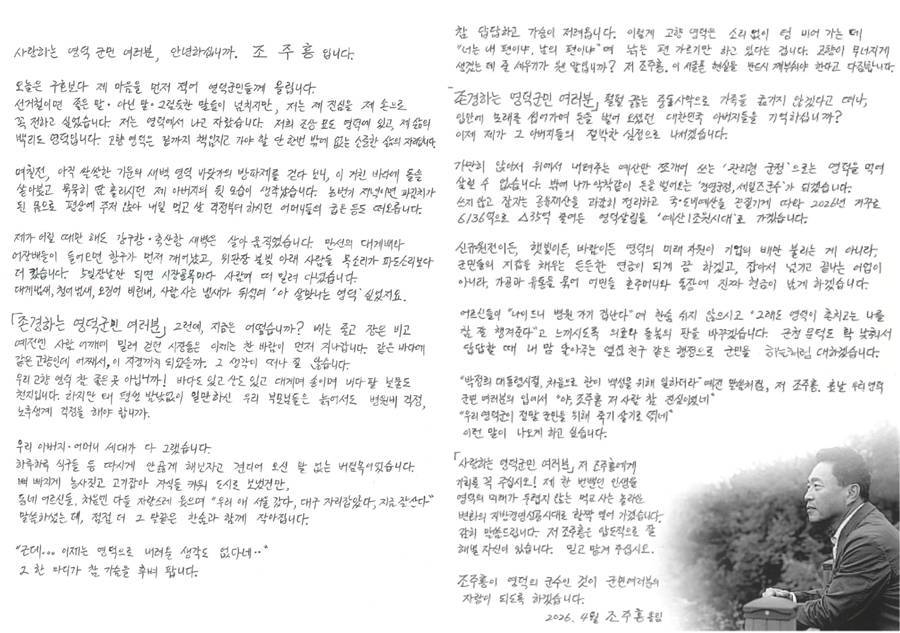 사랑하는 영덕 군민 여러분, 안녕하십니까. 조 주 홍 입니다.
오늘은 구호보다 제 마음을 먼저 적어 영덕군민들께 올립니다.
선거철이면 좋은 말·아닌 말·그럴듯한 말들이 넘치지만, 저는 제 진심을 제 손으로
꼭 전하고 싶었습니다. 저는 영덕에서 나고 자랐습니다. 저의 조상 묘도 영덕에 있고, 제 삶의
뿌리도 영덕입니다. 고향 영덕은 끝까지 책임지고 가야 할 단 한번 밖에 없는 소중한 삶의 자리입니다.
며칠전, 아직 쌀쌀한 기운의 새벽 영덕 바닷가의 방파제를 걷다 보니, 이 거친 바다에 몸을
실어놓고 묵묵히 땀 흘리시던 제 아버지의 뒷 모습이 생각났습니다. 논밭일 저녁이면 파김치가
된 몸으로 평상에 주저 앉아 내일 먹고 살 걱정부터 하시던 어머니들의 굽은 등도 떠오릅니다.
제가 어릴 때만 해도 강구항·축산항 새벽은 살아 움직였습니다. 만선의 대게배와
어장배들이 들어오면 항구가 먼저 깨어났고, 위판장 불빛 아래 사람들 목소리가 파도소리보다
더 컸습니다. 5일장날만 되면 시장골목마다 사람에 떠 밀려 다녔습니다.
대게냄새, 청어냄새, 오징어 비린내, 사람 사는 냄새가 뒤섞여 '아 살맛나는 영덕' 싶었지요.
「존경하는 영덕군민 여러분」 그런데, 지금은 어떻습니까? 배는 줄고 장은 비고
예전엔 사람 어깨에 밀려 걷던 시장통은 이제는 찬 바람이 먼저 지나갑니다. 같은 바다에
같은 고향인데 어쩌다, 이 지경까지 되었을까. 그 생각이 떠나 질 않습니다.
우리 고향 영덕 참 좋은 곳 아닙니까! 바다도 있고 산도 있고 대게며 송이며 내다 팔 보물도
천지입니다. 하지만 왜 평생 밤낮없이 일만하신 우리 부모님들은 늙어서도 병원비 걱정,
노후생계 걱정을 해야 합니까.
우리 아버지·어머니 세대가 다 그랬습니다.
하루하루 식구들 등 따시게 안 굶게 해보자고 견디어 오신 말 없는 버팀목이었습니다.
뼈 빠지게 농사짓고 고기잡아 자식들 키워 도시로 보냈건만,
동네 어르신들, 처음엔 다들 자랑스레 웃으며 "우리 애 서울 갔다, 대구 자리잡았다, 지금 잘산다"
말씀하셨는데, 점점 더 그 말끝은 한숨과 함께 작아집니다.
"근데... 이제는 영덕으로 내려올 생각도 없다네.."
그 한 마디가 참 가슴을 후벼 팝니다.
참 답답하고 가슴이 저려옵니다. 이렇게 고향 영덕은 소리 없이 텅 비어 가는 데
"너는 내 편이냐, 남의 편이냐"며 낡은 편 가르기만 하고 있다는 겁니다. 고향이 무너지게
생겼는데 줄 세우기가 웬 말입니까? 저 조주홍. 이 서글픈 현실을 반드시 깨부숴야 한다고 다짐합니다.
「존경하는 영덕군민 여러분」 펄펄 끓는 중동사막으로 가족을 굶기지 않겠다고 떠나,
입안에 모래를 씹어가며 돈을 벌어 오셨던 대한민국 아버지들을 기억하십니까?
이제 제가 그 아버지들의 절박한 심정으로 나서겠습니다.
가만히 앉아서 위에서 내려주는 예산만 쪼개어 쓰는 '관리형 군정'으로는 영덕을 먹여
살릴 수 없습니다. 밖에 나가 악착같이 돈을 벌어오는 '경영군수, 세일즈군수'가 되겠습니다.
쓰지 않고 잠자는 공유재산을 과감히 정리하고 국·도비예산을 끈질기게 따와 2026년 기준
6136억으로 줄어든 영덕살림을 '예산 1조원시대'로 가겠습니다.
신규원전이든, 햇빛이든, 바람이든 영덕의 미래 자원이 기업의 배만 불리는 게 아니라,
군민들의 지갑을 채우는 든든한 연금이 되게 끔 하겠고, 잡아서 넘기고 끝나는 어업이
아니라, 가공과 유통을 묶어 어민들 호주머니와 통장에 진짜 현금이 남게 하겠습니다.
어르신들이 "나이드니 병원 가기 겁난다"며 한숨 쉬지 않으시고 "그래도 영덕이 촌치고는 나를
참 잘 챙겨준다"고 느끼시도록 의료와 돌봄의 판을 바꾸겠습니다. 군청 문턱도 확 낮춰서
답답할 때 내 맘 알아주는 옆집 친구 같은 행정으로 군민들 하늘처럼 대하겠습니다.
"박정희 대통령시절, 처음으로 관이 백성을 위해 일하더라" 예전 말씀처럼, 저 조주홍. 훗날 우리영덕
군민 여러분의 입에서 "야, 조주홍 저 사람 참 진실이였네"
"우리영덕군이 정말 군민을 위해 죽기 살기로 뛰네"
이런 말이 나오게 하고 싶습니다.
「사랑하는 영덕군민 여러분」 저 조주홍에게
기회를 꼭 주십시오! 제 한 번뿐인 인생을
영덕의 미래가 두렵지 않는 먹고 사는 놀라운
변화의 지방경영성공시대로 활짝 열어 가겠습니다.
감히 말씀드립니다. 저 조주홍은 압도적으로 잘
해낼 자신이 있습니다. 믿고 맡겨 주십시오.
조주홍이 영덕의 군수인 것이 군민여러분의
자랑이 되도록 하겠습니다.
2026. 4월 조주홍 올림